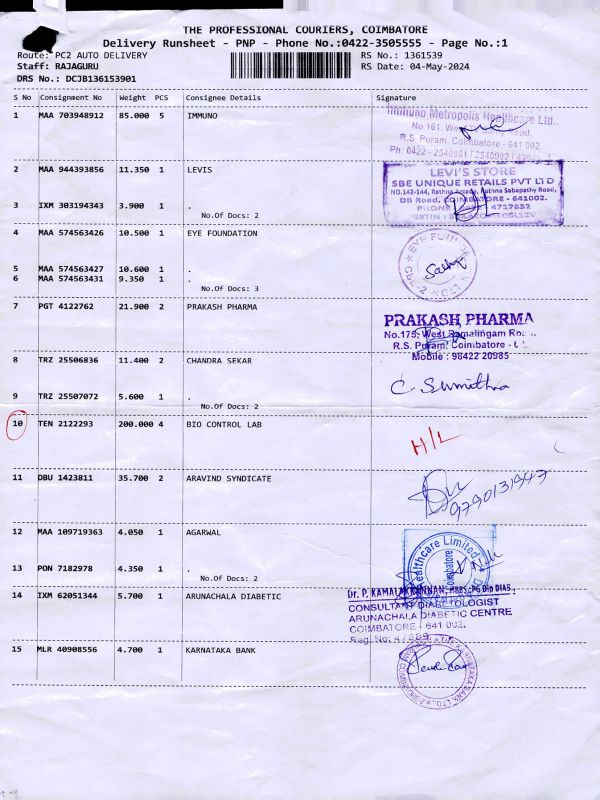 THE PROFESSIONAL COURIERS, COIMBATORE
Delivery Runsheet - PNP - Phone No.:0422-3505555 - Page No.:1
Route: PC2 AUTO DELIVERY RS No.: 1361539
Staff: RAJAGURU RS Date: 04-May-2024
DRS No.: DCJB136153901
S No Consignment No Weight PCS Consignee Details Signature
1 MAA 703948912 85.000 5 IMMUNO
Immuno Metropolis Healthcare Ltd.,
No.161, West Road,
R.S. Puram, Coimbatore - 641 002.
Ph : 0422 - 2540981 / 2540982
2 MAA 944393856 11.350 1 LEVIS
LEVI'S STORE
SBE UNIQUE RETAILS PVT LTD
NO.142-144, Rathna Arcade, Rathna Sabapathy Road,
DB Road, COIMBATORE - 641002.
PHONE 4717632
3 IXM 303194343 3.900 1 .
No.Of Docs: 2
4 MAA 574563426 10.500 1 EYE FOUNDATION
EYE FOUNDA
CBE-2
5 MAA 574563427 10.600 1 .
6 MAA 574563431 9.350 1 .
No.Of Docs: 3
7 PGT 4122762 21.900 2 PRAKASH PHARMA
PRAKASH PHARMA
No.175, West Ramalingam Ro
R.S. Puram, Coimbatore -
Mobile : 98422 20985
8 TRZ 25506836 11.400 2 CHANDRA SEKAR
C. Sumithra
9 TRZ 25507072 5.600 1 .
No.Of Docs: 2
10 TEN 2122293 200.000 4 BIO CONTROL LAB
H/L
11 DBU 1423811 35.700 2 ARAVIND SYNDICATE
9790131947
12 MAA 109719363 4.050 1 AGARWAL
Healthcare Limited
Coimbatore
13 PON 7182978 4.350 1 .
No.Of Docs: 2
14 IXM 62051344 5.700 1 ARUNACHALA DIABETIC
Dr. P. KAMALAKANNAN, MBBS.,PG Dip DIAB.,
CONSULTANT DIABETOLOGIST
ARUNACHALA DIABETIC CENTRE
COIMBATORE - 641 002.
Reg. No: 47885
15 MLR 40908556 4.700 1 KARNATAKA BANK
KARNATAKA BANK LTD.,